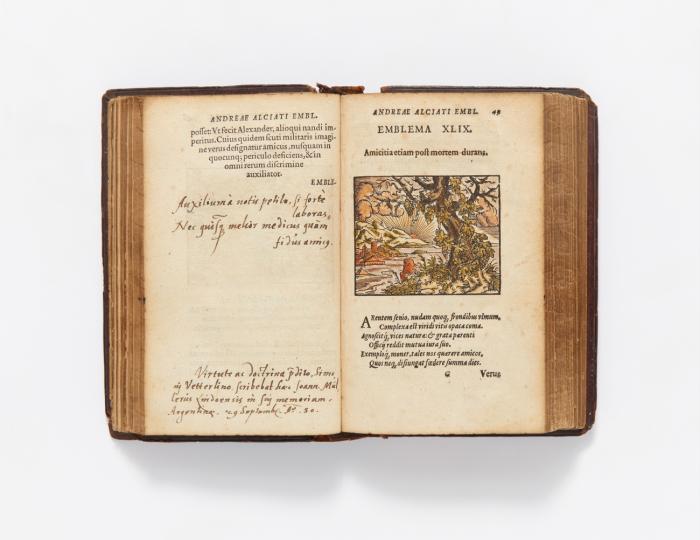 ANDREAE ALCIATI EMBL.
posset: Vt fecit Alexander, alioqui nandi im-
peritus. Cuius quidem scuti militaris imagi-
ne verus designatur amicus, nusquam in
quocunq; periculo deficiens, & in
omni rerum discrimine
auxiliator.
EMBLE-
Auxilium à notis petito, si fortè
laboras,
Nec quisq; melior medicus quàm
fidus amicq.
Virtute ac doctrina pdito, Simo-
ni Vetterlino, scribebat hæc Joann. Mül
lerus Lindoensis in sui memoriam.
Argentinæ. 29 Septemb: Aº. 50.
ANDREAE ALCIATI EMBL. 49
EMBLEMA XLIX.
Amicitia etiam post mortem durans.
ARentem senio, nudam quoq; frondibus vlmum,
Complexa est viridi vitis opaca coma.
Agnoscitq; vices naturæ: & grata parenti
Officij reddit mutua iura suo.
Exemploq; monet, tales nos quærere amicos,
Quos neq; disiungat fœdere summa dies.
G Verus